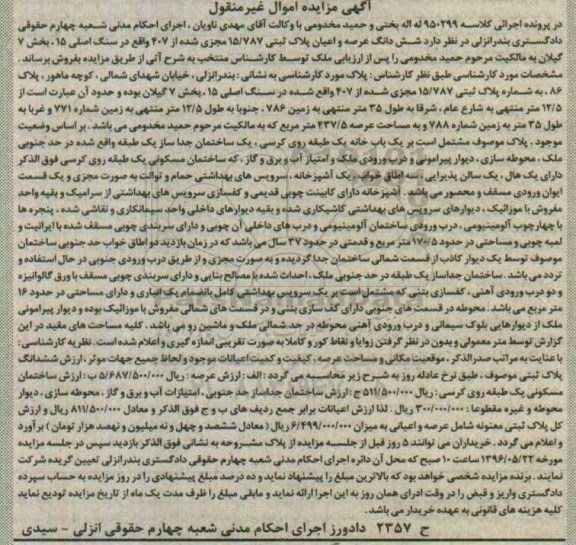 آگهی مزایده اموال غیرمنقول
در پرونده اجرائی کلاسه ۹۵۰۲۹۹ له اله بخشی و حمید مخدومی با وکالت آقای مهدی ناویان ، اجرای احکام مدنی شعبه چهارم حقوقی
دادگستری بندرانزلی در نظر دارد شش دانگ عرصه و اعیان پلاک ثبتی ۱۵/۷۸۷ مجزی شده از ۴۰۷ واقع در سنگ اصلی ۱۵ ، بخش ۷
گیلان به مالکیت مرحوم حمید مخدومی را پس از ارزیابی ملک توسط کارشناس منتخب به شرح آتی از طریق مزایده بفروش برساند .
مشخصات مورد کارشناسی طبق نظر کارشناس : پلاک مورد کارشناسی به نشانی : بندرانزلی ، خیابان شهدای شمالی ، کوچه ماهور ، پلاک
۸۶ ، به شماره پلاک ثبتی ۱۵/۷۸۷ مجزی شده از ۴۰۷ واقع شده در سنگ اصلی ۱۵ ، بخش ۷ گیلان بوده و حدود آن عبارت است از
۱۲/۵ متر منتهی به شارع عام ، شرقا به طول ۳۵ متر منتهی به زمین ۷۸۶ ، جنوبا به طول ۱۲/۵ متر منتهی به زمین شماره ۷۷۱ و غربا به
طول ۳۵ متر به زمین شماره ۷۸۸ و به مساحت عرصه ۴۳۷/۵ متر مربع که به مالکیت مرحوم حمید مخدومی می باشد . بر اساس وضعیت
موجود ، پلاک موصوف مشتمل است بر یک باب خانه یک طبقه روی کرسی ، یک ساختمان جدا ساز یک طبقه واقع شده در حد جنوبی
ملک ، محوطه سازی ، دیوار پیرامونی و درب ورودی ملک و امتیاز آب و برق و گاز ، که ساختمان مسکونی یک طبقه روی کرسی فوق الذکر
دارای یک هال ، یک سالن پذیرایی ، سه اطاق خواب ، یک آشپزخانه ، سرویس های بهداشتی حمام و توالت به صورت مجزی و یک قسمت
ایوان ورودی مسقف و محصور می باشد . آشپزخانه دارای کابینت چوبی قدیمی و کفسازی سرویس های بهداشتی از سرامیک و بقیه واحد
مفروش با موزائیک ، دیوارهای سرویس های بهداشتی کاشیکاری شده و بقیه دیوارهای داخلی واحد سیمانکاری و نقاشی شده ، پنجره ها
با چهارچوب آلومینیومی ، درب ورودی ساختمان آلومینیومی و درب های داخلی آن چوبی و دارای سربندی چوبی مسقف شده با ایرانیت و
لمبه چوبی و مساحتی در حدود ۱۷۰/۵ متر مربع و قدمتی در حدود ۳۷ سال می باشد که در زمان بازدید دو اطاق خواب حد جنوبی ساختمان
موصوف توسط یک دیوار کاذب از قسمت شمالی ساختمان جدا گردیده و به صورت مجزی و از طریق درب ورودی جنوبی در حال استفاده و
تردد می باشد . ساختمان جداساز یک طبقه در حد جنوبی ملک ، احداث شده با مصالح بنایی و دارای سربندی چوبی مسقف با ورق گالوانیزه
و دو درب ورودی آهنی ، کفسازی بتنی که مشتمل است بر یک سرویس بهداشتی کامل بانضمام یک انباری و دارای مساحتی در حدود ۱۶
متر مربع می باشد . محوطه در قسمت های جنوبی دارای کف سازی بتنی و در قسمت های شمالی مفروش با موزائیک بوده و دیوار پیرامونی
ملک از دیوارهایی بلوک سیمانی و درب ورودی آهنی محوطه در حد شمالی ملک و ماشین رو می باشد . کلیه مساحت های مقید در این
گزارش توسط متر معمولی و بدون در نظر گرفتن زوایا و نقاط کور و کاملا به صورت تقریبی اندازه گیری و اعلام شده است . نظریه کارشناسی :
با عنایت به مراتب صدرالذکر ، موقعیت مکانی و مساحت عرصه ، کیفیت و کمیت اعیانات موجود و لحاظ جمیع جهات موثر ، ارزش ششدانگ
پلاک ثبتی موصوف ، طبق نرخ عادله روز به شرح زیر محاسبه می گردد : الف : ارزش عرصه : ریال ۵/۶۸۷/۵۰۰/۰۰۰ ب : ارزش ساختمان
مسکونی یک طبقه روی کرسی : ریال ۵۱۱/۵۰۰/۰۰۰ ج : ارزش ساختمان جداساز حد جنوبی ، امتیازات آب و برق و گاز ، محوطه سازی ، دیوار
محوطه و غیره مقطوعا : ریال ۳۰۰/۰۰۰/۰۰۰ . لذا ارزش اعیانات برابر جمع ردیف های ب و ج فوق الذکر و معادل ۸۱۱/۵۰۰/۰۰۰ ریال و ارزش
کل پلاک ثبتی معنونه شامل عرصه و اعیانی به میزان ۶/۴۹۹/۰۰۰/۰۰۰ ریال ( معادل ششصد و چهل و نه میلیون و نهصد هزار تومان ) برآورد
و اعلام می گردد . خریداران می توانند ۵ روز قبل از جلسه مزایده از پلاک مشروحه به نشانی فوق الذکر بازدید سپس در جلسه مزایده
مورخه ۱۳۹۶/۰۵/۲۲ ساعت ۱۰ صبح که محل آن دائره اجرای احکام مدنی شعبه چهارم حقوقی دادگستری بندرانزلی تعیین گریده شرکت
نمایند . برنده مزایده شخصی خواهد بود که بالاترین مبلغ را پیشنهاد نماید و ده درصد مبلغ پیشنهادی را در روز مزایده به حساب سپرده
دادگستری واریز و قبض را در وقت اداری همان روز به این اجرا ارائه نماید و مابقی مبلغ را ظرف مدت یک ماه از تاریخ مزایده تودیع نماید
کلیه هزینه های قانونی به عهده خریدار می باشد .
ح ۲۳۵۷ دادورز اجرای احکام مدنی شعبه چهارم حقوقی انزلی – سیدی